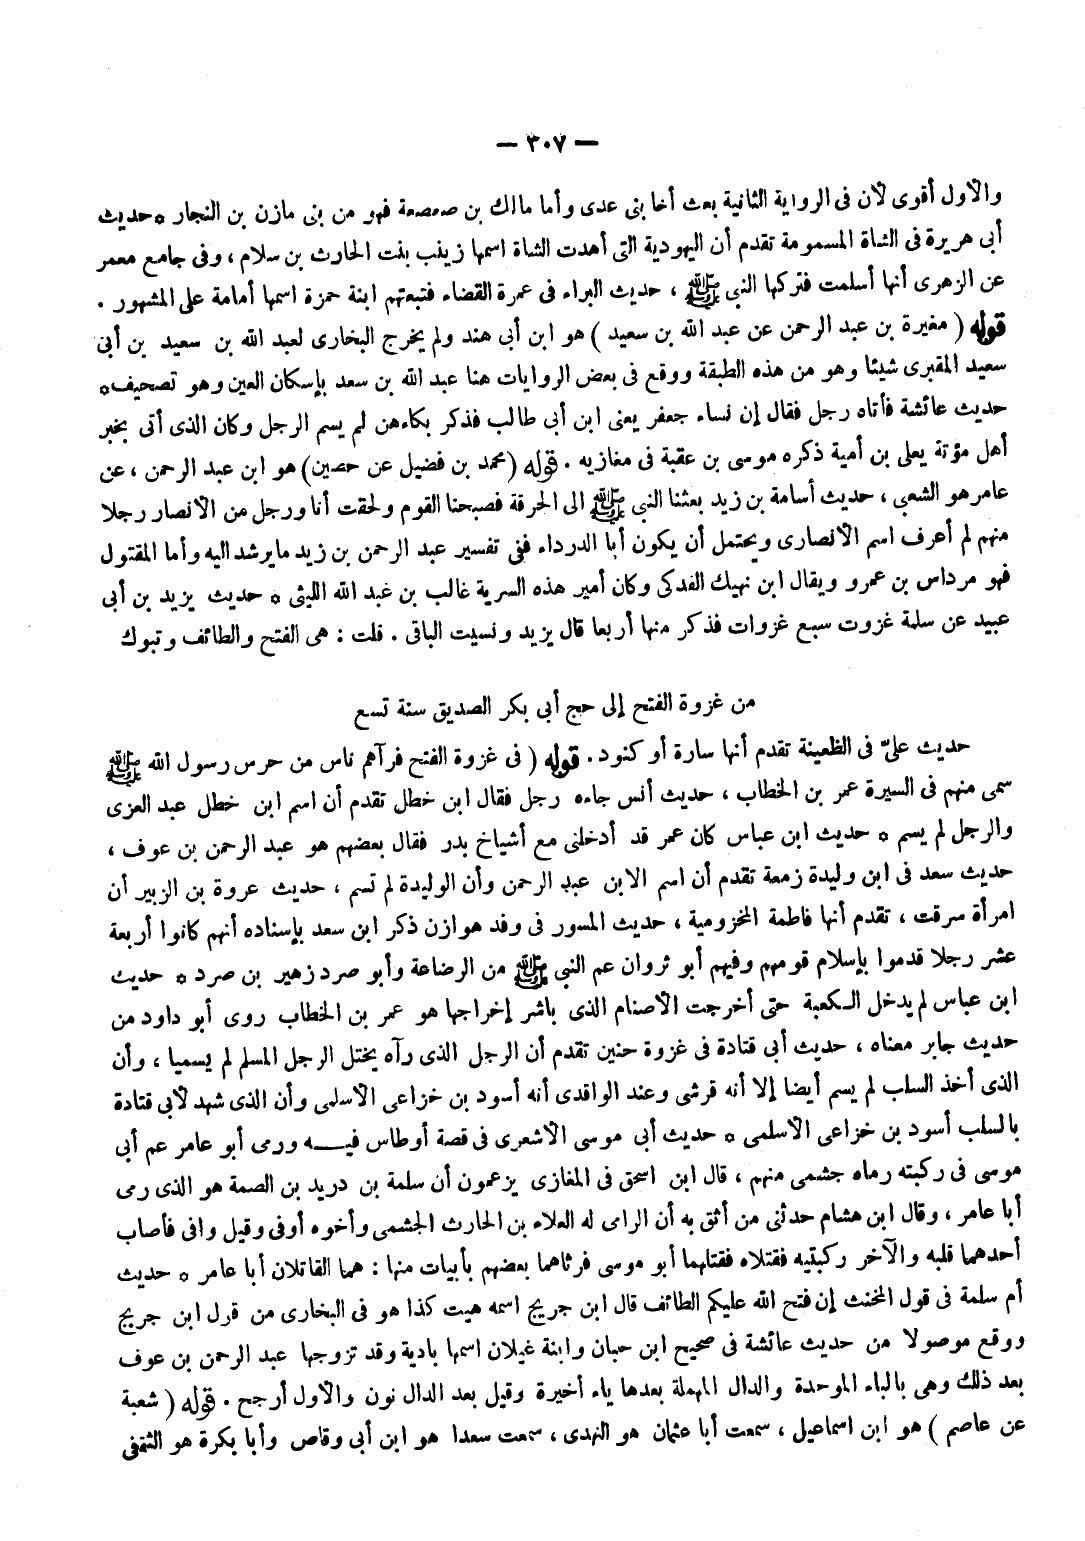 — ٣٠٧ —
والأول أقوى لأن فى الرواية الثانية بعث أخا بنى عدى وأما مالك بن صعصعة فهو من بنى مازن بن النجار * حديث
أبى هريرة فى الشاة المسمومة تقدم أن اليهودية التى أهدت الشاة اسمها زينب بنت الحارث بن سلام ، وفى جامع معمر
عن الزهرى أنها أسلمت فتركها النبى ﷺ ، حديث البراء فى عمرة القضاء فتبعتهم ابنة حمزة اسمها أمامة على المشهور .
قوله ( مغيرة بن عبد الرحمن عن عبد الله بن سعيد ) هو ابن أبى هند ولم يخرج البخارى لعبد الله بن سعيد بن أبى
سعيد المقبرى شيئا وهو من هذه الطبقة ووقع فى بعض الروايات هنا عبد الله بن سعد بإسكان العين وهو تصحيف *
حديث عائشة فأتاه رجل فقال إن نساء جعفر يعنى ابن أبى طالب فذكر بكاءهن لم يسم الرجل وكان الذى أتى بخبر
أهل مؤتة يعلى بن أمية ذكره موسى بن عقبة فى مغازيه . قوله ( محمد بن فضيل عن حصين ) هو ابن عبد الرحمن ، عن
عامر هو الشعبى ، حديث أسامة بن زيد بعثنا النبى ﷺ الى الحرقة فصبحنا القوم ولحقت أنا ورجل من الأنصار رجلا
منهم لم أعرف اسم الأنصارى ويحتمل أن يكون أبا الدرداء ففى تفسير عبد الرحمن بن زيد ما يرشد اليه وأما المقتول
فهو مرداس بن عمرو ويقال ابن نهيك الفدكى وكان أمير هذه السرية غالب بن عبد الله الليثى * حديث يزيد بن أبى
عبيد عن سلمة غزوت سبع غزوات فذكر منها أربعا قال يزيد ونسيت الباقى . قلت : هى الفتح والطائف وتبوك
من غزوة الفتح إلى حج أبى بكر الصديق سنة تسع
حديث علىّ فى الظعينة تقدم أنها سارة أو كنود . قوله ( فى غزوة الفتح فرآهم ناس من حرس رسول الله ﷺ
سمى منهم فى السيرة عمر بن الخطاب ، حديث أنس جاءه رجل فقال ابن خطل تقدم أن اسم ابن خطل عبد العزى
والرجل لم يسم * حديث ابن عباس كان عمر قد أدخلنى مع أشياخ بدر فقال بعضهم هو عبد الرحمن بن عوف ،
حديث سعد فى ابن وليدة زمعة تقدم أن اسم الابن عبد الرحمن وأن الوليدة لم تسم ، حديث عروة بن الزبير أن
امرأة سرقت ، تقدم أنها فاطمة المخزومية ، حديث المسور فى وفد هوازن ذكر ابن سعد بإسناده أنهم كانوا أربعة
عشر رجلا قدموا بإسلام قومهم وفيهم أبو ثروان عم النبى ﷺ من الرضاعة وأبو صرد زهير بن صرد * حديث
ابن عباس لم يدخل الكعبة حتى أخرجت الأصنام الذى باشر إخراجها هو عمر بن الخطاب روى أبو داود من
حديث جابر معناه ، حديث أبى قتادة فى غزوة حنين تقدم أن الرجل الذى رآه يختل الرجل المسلم لم يسميا ، وأن
الذى أخذ السلب لم يسم أيضا إلا أنه قرشى وعند الواقدى أنه أسود بن خزاعى الأسلمى وأن الذى شهد لأبى قتادة
بالسلب أسود بن خزاعى الأسلمى * حديث أبى موسى الأشعرى فى قصة أوطاس فيــه ورمى أبو عامر عم أبى
موسى فى ركبته رماه جشمى منهم ، قال ابن اسحق فى المغازى يزعمون أن سلمة بن دريد بن الصمة هو الذى رمى
أبا عامر ، وقال ابن هشام حدثنى من أثق به أن الرامى له العلاء بن الحارث الجشمى وأخوه أوفى وقيل وافى فأصاب
أحدهما قلبه والآخر ركبتيه فقتلاه فقتلهما أبو موسى فرثاهما بعضهم بأبيات منها : هما القاتلان أبا عامر * حديث
أم سلمة فى قول المخنث إن فتح الله عليكم الطائف قال ابن جريج اسمه هيت كذا هو فى البخارى من قول ابن جريج
ووقع موصولا من حديث عائشة فى صحيح ابن حبان وابنة غيلان اسمها بادية وقد تزوجها عبد الرحمن بن عوف
بعد ذلك وهى بالباء الموحدة والدال المهملة بعدها ياء أخيرة وقيل بعد الدال نون والأول أرجح . قوله ( شعبة
عن عاصم ) هو ابن اسماعيل ، سمعت أبا عثمان هو النهدى ، سمعت سعدا هو ابن أبى وقاص وأبا بكرة هو الثقفى